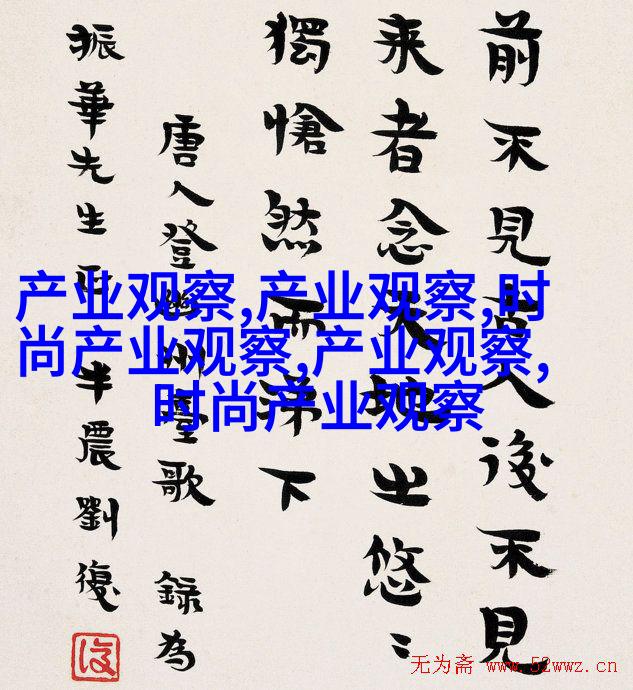 前不見古人後不見
来者念天地之悠〻
獨愴然而涕下
唐人登幽州臺歌 錄為
振華先生正 半農劉復
復
产业观察,产业观察,时
尚产业观察,产业观察,
时尚产业观察
无为斋 www.52wwz.cn